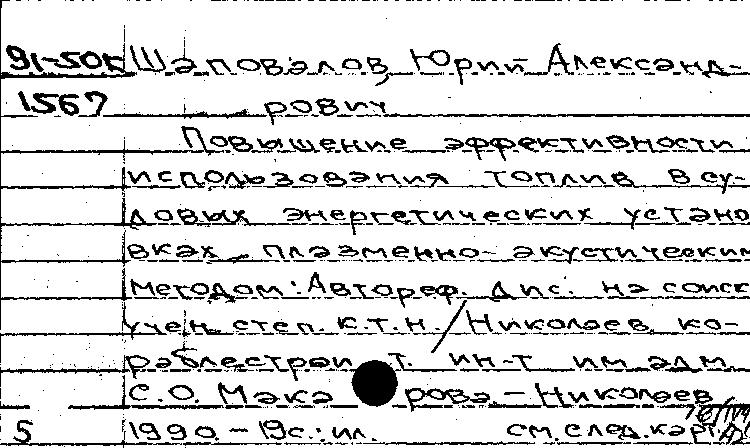 91-50к Шаповалов, Юрий Александ-
1567 рович
Повышение эффективности
использования топлив в су-
довых энергетических устано
вках плазменно-акустическим
методом: Автореф. дис. на соиск
учен. степ. к.т.н. / Николаев. ко-
раблестроит. ин-т им. адм.
С.О. Макарова. - Николаев
5 1990. - 19с.: ил. см. след. карт.